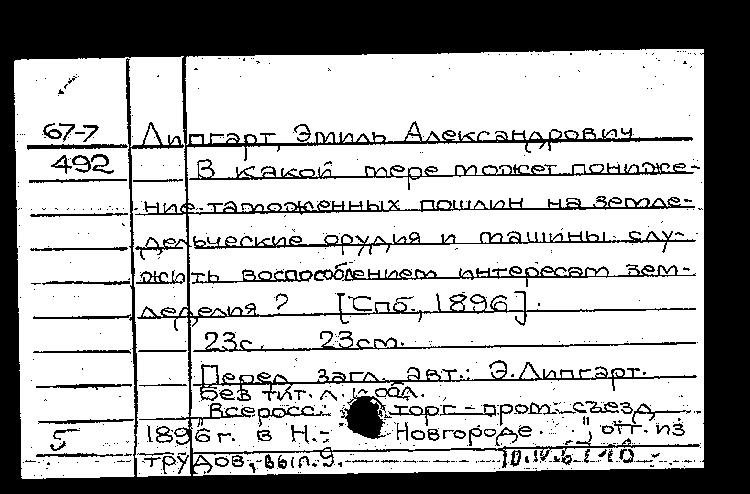 67-7 Липгарт, Эмиль Александрович
492 В какой мере может пониже-
ние таможенных пошлин на земле-
дельческие орудия и машины слу-
жить воспособлением интересам зем-
леделия? [Спб., 1896].
23с. 23см.
Перед загл. авт.: Э. Липгарт.
Без тит. л. и обл.
Всеросс. торг.-пром. съезд
5 1896 г. в Н.-Новгороде. ; отт. из
трудов, вып. 9.